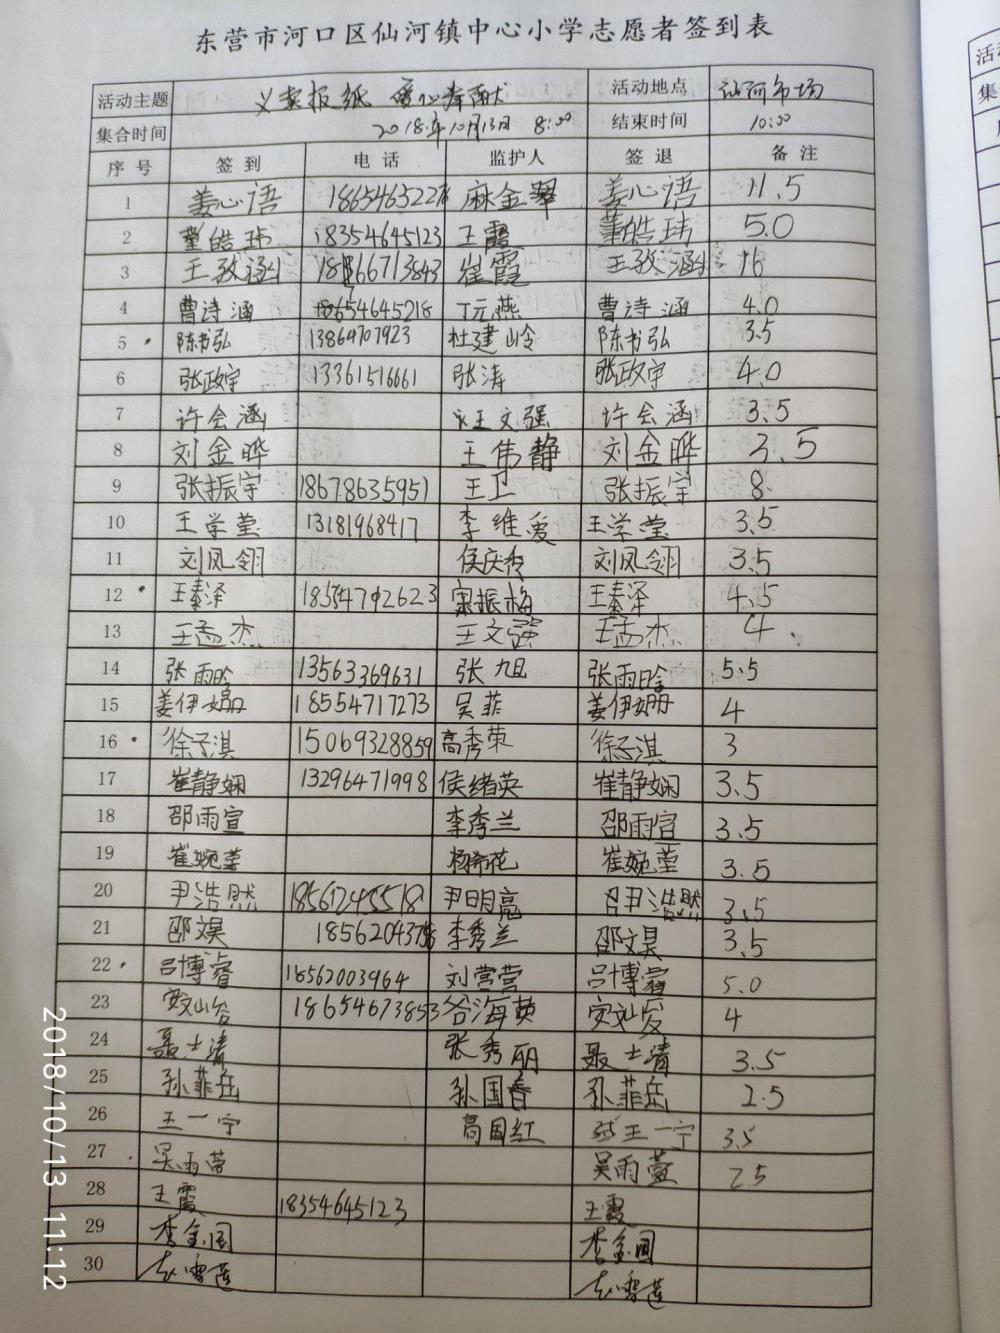 东营市河口区仙河镇中心小学志愿者签到表
活动主题 义卖报纸 爱心奉献 活动地点 仙河市场
集合时间 2018年10月13日 8:00 结束时间 10:00
序号 签到 电话 监护人 签退 备注
1 姜心语 麻金翠 姜心语 11.5
2 董皓玮 18354645123 王霞 董皓玮 5.0
3 王致涵 崔霞 王致涵 16
4 曹诗涵 18654645218 丁元燕 曹诗涵 4.0
5 陈书弘 13869707923 杜建岭 陈书弘 3.5
6 张政宇 13361516661 张涛 张政宇 4.0
7 许会涵 王文强 许会涵 3.5
8 刘金晔 王伟静 刘金晔 3.5
9 张振宇 18678635951 王卫 张振宇 8
10 王学莹 13181968417 李维爱 王学莹 3.5
11 刘凤翎 侯庆秀 刘凤翎 3.5
12 王泰泽 18554792623 宋振梅 王泰泽 4.5
13 王孟杰 王文强 王孟杰 4
14 张雨晗 13563369631 张旭 张雨晗 5.5
15 姜伊姗 18554717273 吴菲 姜伊姗 4
16 徐子淇 15069328859 高秀荣 徐子淇 3
17 崔静娴 13296471998 侯绪英 崔静娴 3.5
18 邵雨宣 李秀兰 邵雨宣 3.5
19 崔婉莹 杨希花 崔婉莹 3.5
20 尹浩然 18562455518 尹明亮 尹浩然 3.5
21 邵文昊 李秀兰 邵文昊 3.5
22 吕博睿 18562003964 刘营营 吕博睿 5.0
23 18654673853 谷海英 4
24 聂士清 张秀丽 聂士清 3.5
25 孙菲岳 孙国春 孙菲岳 2.5
26 王一宁 高国红 王一宁 3.5
27 吴雨萱 吴雨萱 2.5
28 王霞 18354645123 王霞
29 李金国 李金国
30 赵雪莲 赵雪莲
2018/10/13 11:12
活动
集合